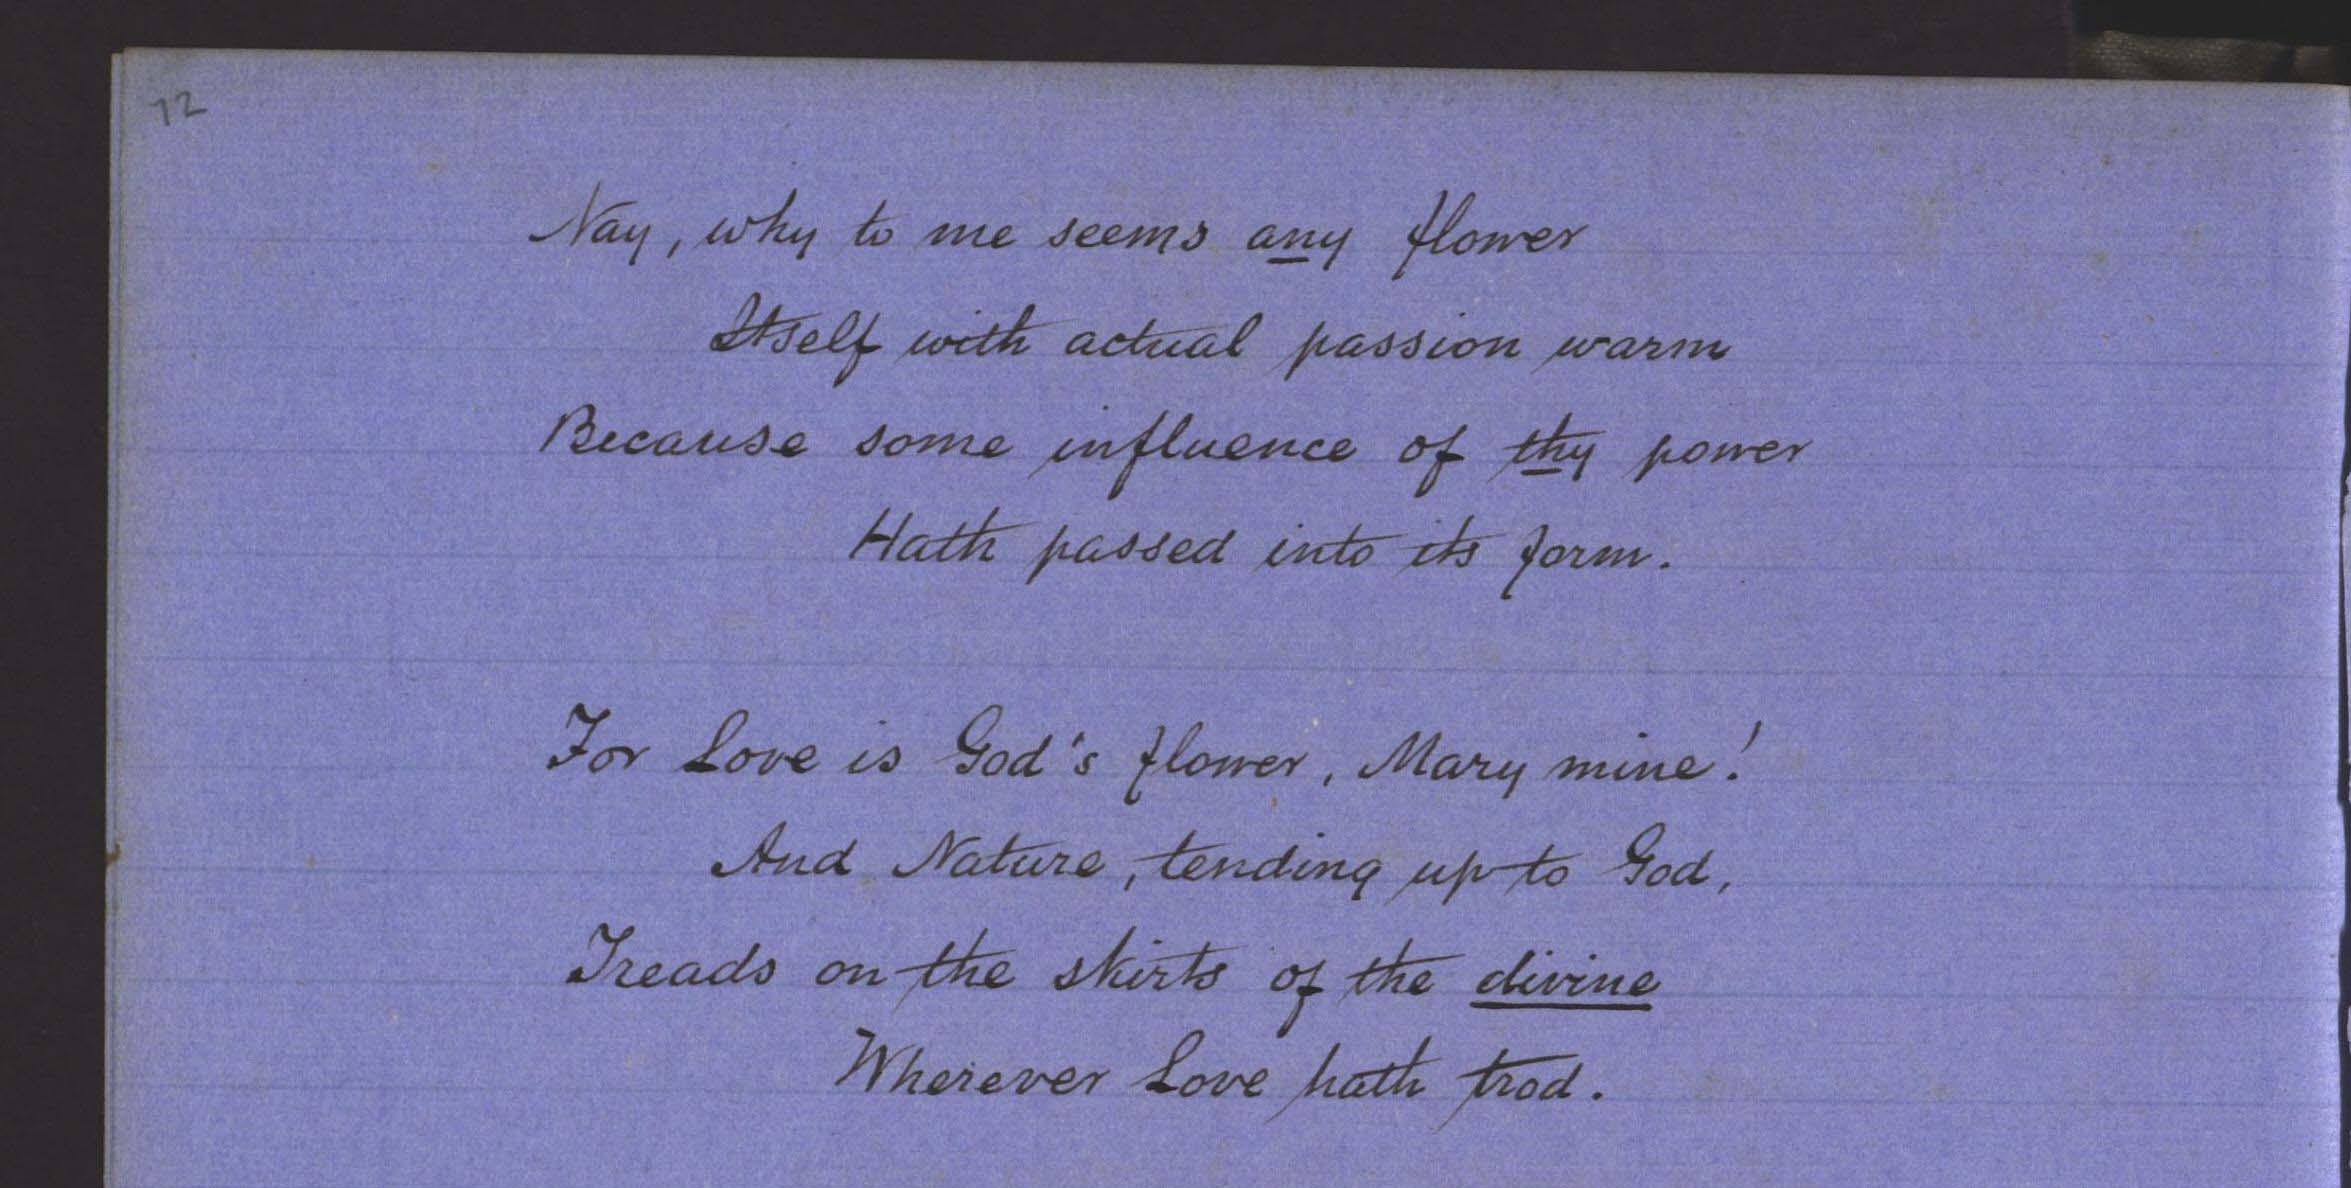 72
Nay, why to me seems any flower
Itself with actual passion warm
Because some influence of thy power
Hath passed into its form.
For Love is God's flower, Mary mine!
And Nature, tending up to God,
Treads on the skirts of the divine
Wherever Love hath trod.